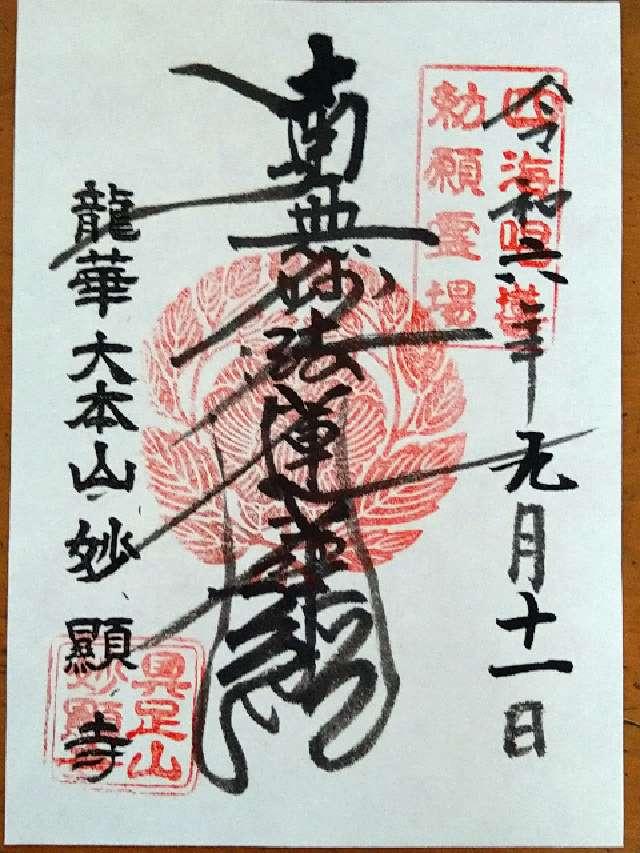 四海唱導
勅願霊場
令和六年元月十一日
南無妙法蓮華経
龍華大本山妙顯寺
具足山
妙顯寺